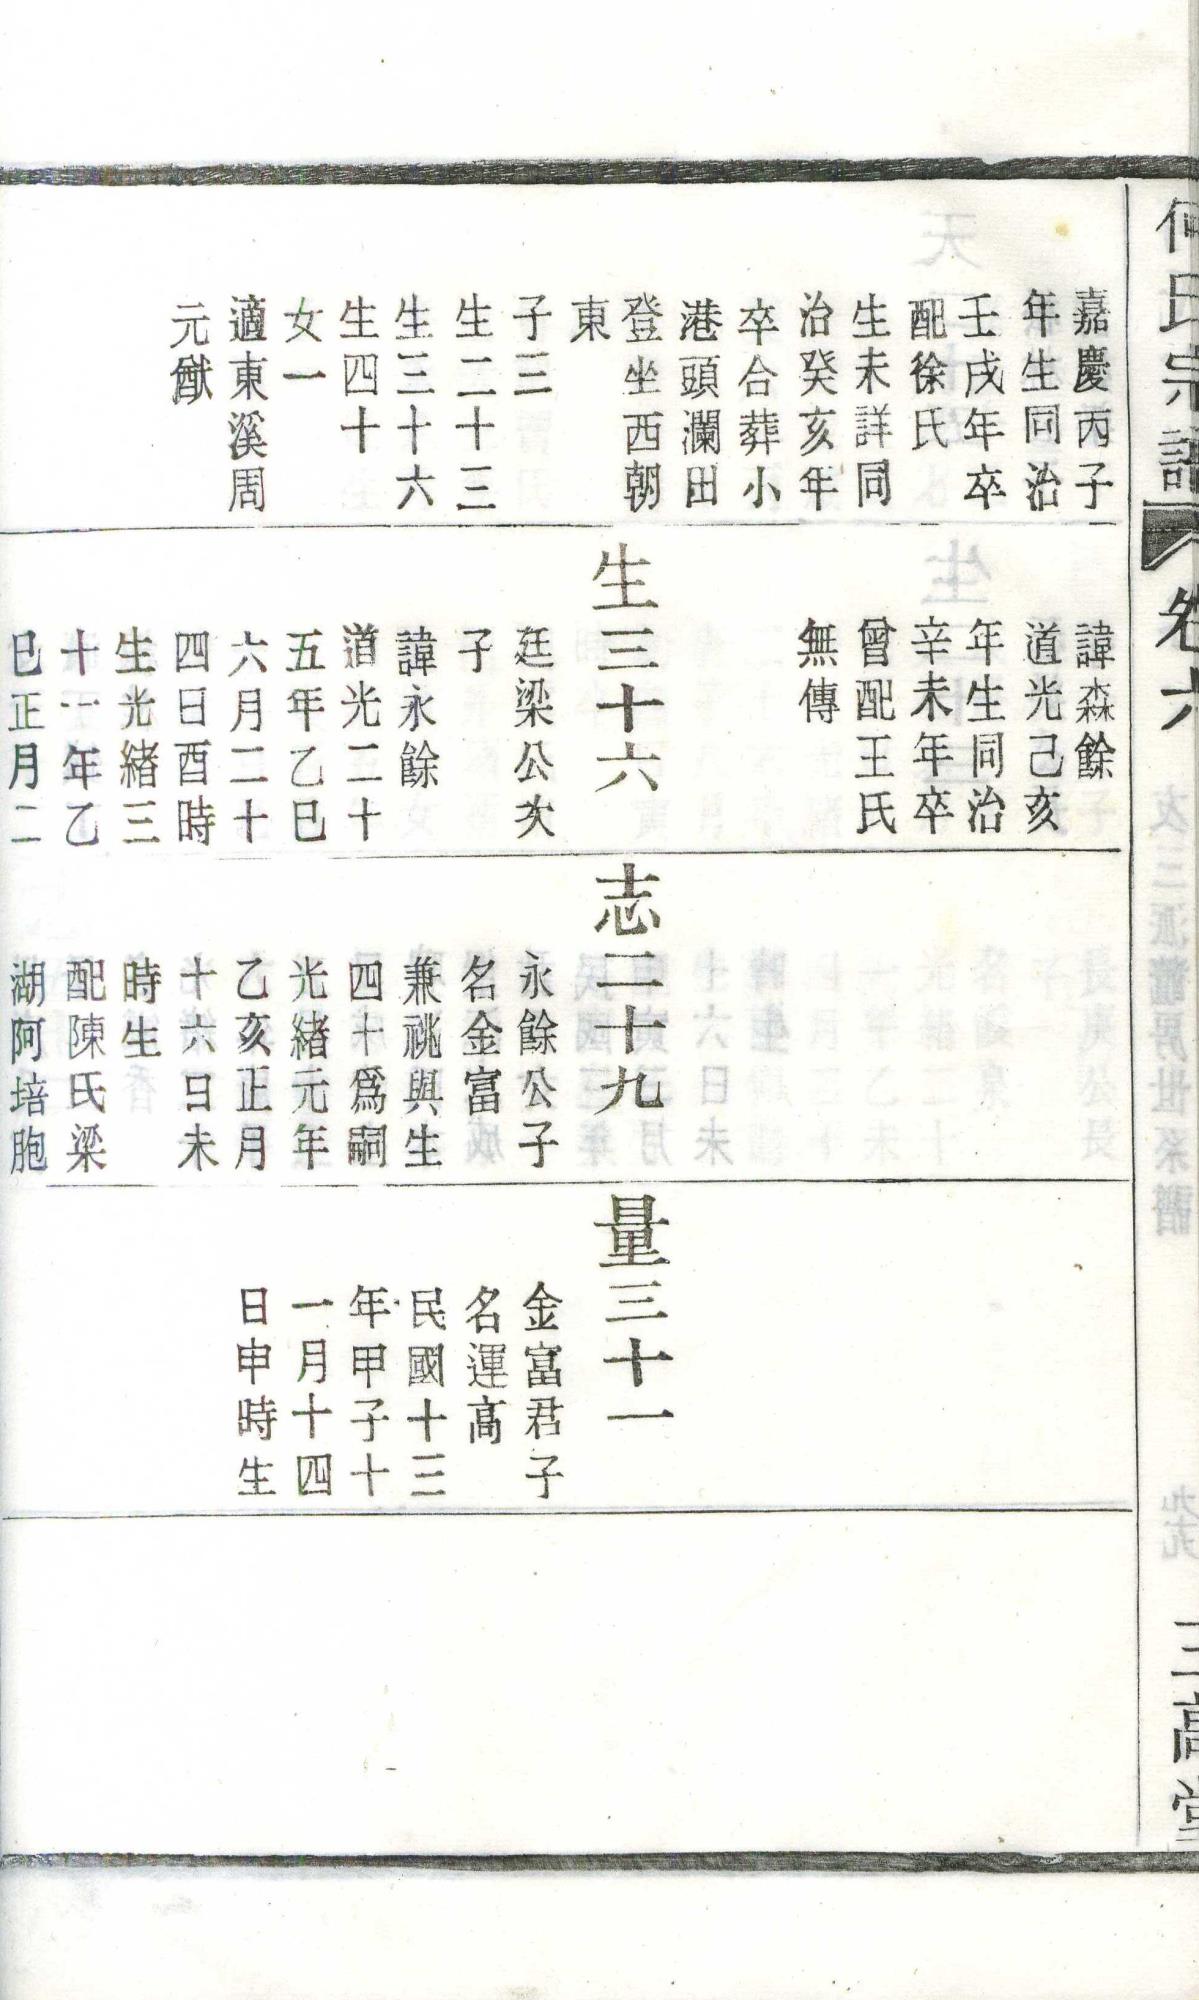 何氏宗譜
卷六
三高堂
嘉慶丙子
年生同治
壬戌年卒
配徐氏
生未詳同
治癸亥年
卒合葬小
港頭瀾田
登坐西朝
東
子三
生二十三
生三十六
生四十
女一
適東溪周
元猷
諱森餘
道光己亥
年生同治
辛未年卒
曾配王氏
無傳
生三十六
廷梁公次
子
諱永餘
道光二十
五年乙巳
六月二十
四日酉時
生光緒三
十一年乙
巳正月二
志二十九
永餘公子
名金富
兼祧與生
四十爲嗣
光緒元年
乙亥正月
十六日未
時生
配陳氏梁
湖阿培胞
量三十一
金富君子
名運高
民國十三
年甲子十
一月十四
日申時生